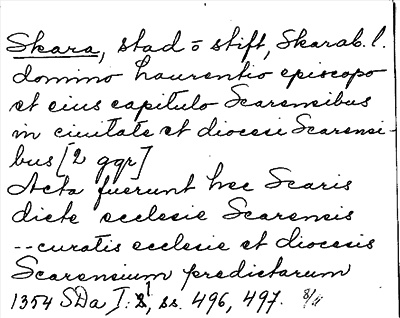 Skara, stad o stift, Skarab. l.
domino Laurentio episcopo
et eius capitulo Scarensibus
in ciuitate et diocesi Scarensi-
bus [2 ggr]
Acta fuerunt hec Scaris
dicte ecclesie Scarensis
--curatis ecclesie et diocesis
Scarensium predictarum
1354 SDa I:1, ss. 496, 497. 8/11